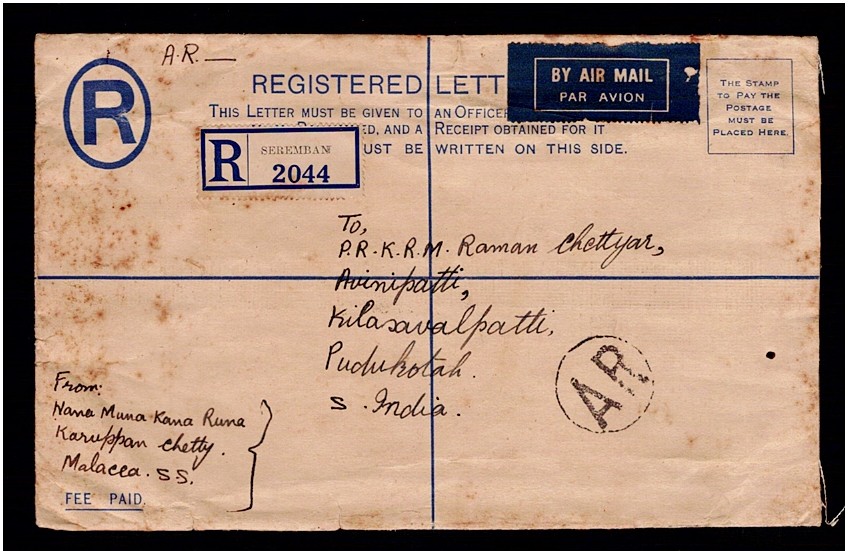 A.R. —
R
REGISTERED LETT
BY AIR MAIL
PAR AVION
THE STAMP
TO PAY THE
POSTAGE
MUST BE
PLACED HERE.
THIS LETTER MUST BE GIVEN TO AN OFFICER
ED, AND A RECEIPT OBTAINED FOR IT
UST BE WRITTEN ON THIS SIDE.
R SEREMBAN
2044
To,
P.R.K.R.M. Raman Chettyar,
Avinipatti,
Kilasavalpatti,
Pudukotah.
S. India.
AR
From:
Nana Muna Kana Runa
Karuppan chetty.
Malacca. S S.
FEE PAID.